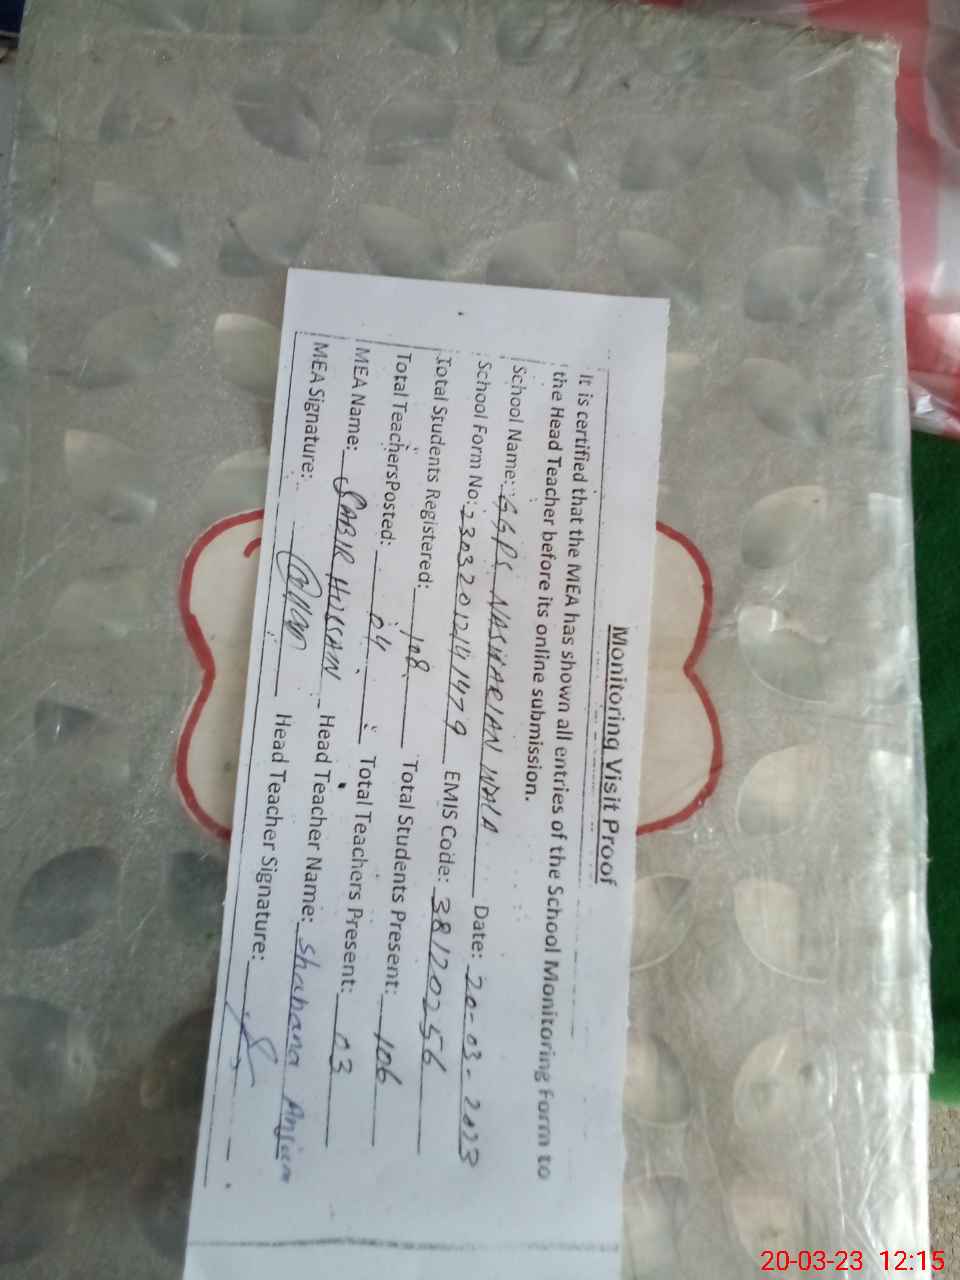 Monitoring Visit Proof
It is certified that the MEA has shown all entries of the School Monitoring Form to
the Head Teacher before its online submission.
School Name: GGPS NASHARIAN WALA Date: 20-03-2023
School Form No: 2303201214 1479 EMIS Code: 38120256
Total Students Registered: 108 Total Students Present: 106
Total Teachers Posted: 04 Total Teachers Present: 03
MEA Name: SABIR HUSSAIN Head Teacher Name: Shabana Anjum
MEA Signature: Head Teacher Signature:
20-03-23 12:15